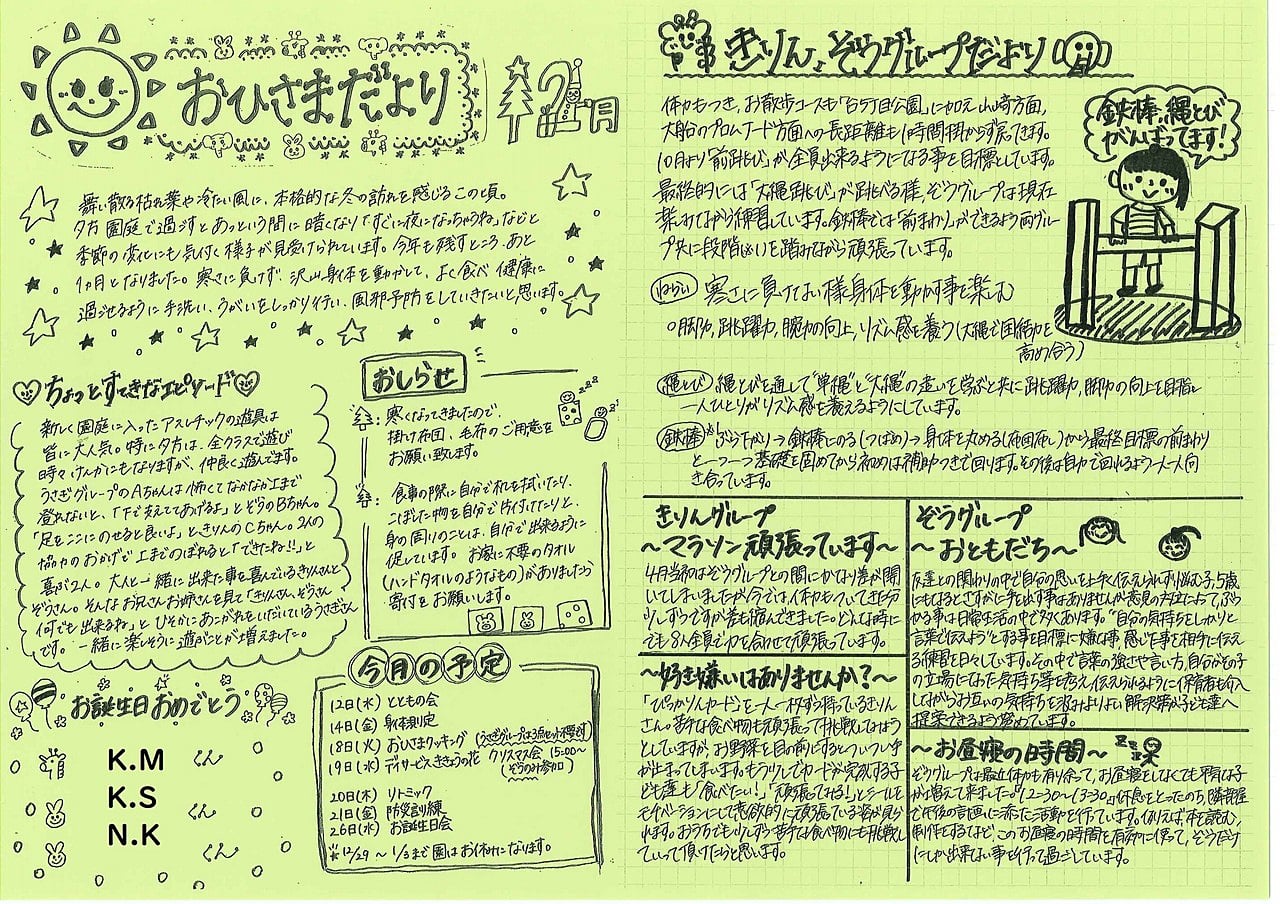 おひさまだより
12月
舞い散る枯れ葉や冷たい風に、本格的な冬の訪れを感じるこの頃。
夕方園庭で過ごすとあっという間に暗くなり「すぐに夜になっちゃうね」などと
季節の変化にも気付く様子が見受けられています。今年も残すところ、あと
1ヵ月となりました。寒さに負けず、沢山身体を動かして、よく食べ健康に
過ごせるように手洗い、うがいをしっかり行い、風邪予防をしていきたいと思います。
ちょっとすてきなエピソード
新しく園庭に入ったアスレチックの遊具は
皆に大人気。特に夕方は、全クラスで遊び
時々けんかにもなりますが、仲良く遊んでます。
うさぎグループのAちゃんは怖くてなかなか上まで
登れないと、「下で支えててあげるよ」とぞうのBちゃん。
「足をここにのせると良いよ」ときりんのCちゃん。2人の
協力のおかげで上までのぼれると「できたね!!」と
喜ぶ2人。大人と一緒に出来た事を喜んでいるきりんさんと
ぞうさん。そんなお兄さんお姉さんを見て「きりんさん、ぞうさん
何でも出来るね」とひそかにあこがれをいだいているうさぎさん
です。一緒に楽しそうに遊ぶことが増えました。
おしらせ
寒くなってきましたので、
掛け布団、毛布のご用意を
お願い致します。
食事の際に自分で机を拭いたり、
こぼした物を自分で片付けたりと、
身の回りのことは、自分で出来るように
促しています。お家に不要のタオル
(ハンドタオルのようなもの)がありましたら
寄付をお願いします。
お誕生日おめでとう
K.M くん
K.S くん
N.K くん
今月の予定
12日(水) とともの会
14日(金) 身体測定
18日(火) おひさまクッキング
19日(水) デイサービスききょうの花 クリスマス会 (15:00〜
ぞうのみ参加)
20日(木) リトミック
21日(金) 防災訓練
26日(水) お誕生日会
※12/29 〜 1/3まで園はお休みになります。
きりん、ぞうグループだより
体力もつき、お散歩コースも「台5丁目公園」に加え、山崎方面、
大船のプロムナード方面への長距離も1時間掛からず戻ってきます。
10月より「前跳び」が全員出来るようになる事を目標としています。
最終的には「大縄跳び」が跳べる様、ぞうグループは現在
楽しみながら練習しています。鉄棒では「前まわり」ができるよう両グルー
プ共に段階を踏みながら頑張っています。
鉄棒、縄とび
がんばってます!
ねらい 寒さに負けない様身体を動かす事を楽しむ
○脚力、跳躍力、腕力の向上、リズム感を養う(大縄で団結力を
高め合う)
縄とび 縄とびを通して"単縄"と"大縄"の違いを学ぶと共に跳躍力、脚力の向上を目指し
一人ひとりがリズム感を養えるようにしています。
鉄棒 ぶら下がり→鉄棒にのる(つばめ)→身体を丸める(布団干し)から最終目標の前まわり
と一つ一つ基礎を固めてから初めは補助つきで回ります。その後は自力で回れるよう一人一人向
き合っています。
きりんグループ
〜マラソン頑張っています〜
4月当初はぞうグループとの間にかなり差が開
いてしまいましたが、今では体力もついてきた分
少しずつですが差も縮んできました。どんな時に
でも8人全員で力を合わせて頑張っています。
〜好き嫌いはありませんか?〜
「ぴっかりんカード」を一人一枚ずつ持っているきりん
さん。苦手な食べ物も頑張って挑戦してみよう
としていますが、お野菜を目の前にするとついつい手
が止まってしまいます。もう少しでカードが完成する子
ども達も「食べたい!」「頑張ってみる!」とシールを
モチベーションにして意欲的に頑張っている姿が見ら
れます。おうちでも少しずつ苦手な食べ物にも挑戦し
ていって頂けたらと思います。
ぞうグループ
〜おともだち〜
友達との関わりの中で自分の思いを上手く伝えられずに悩む子、5歳
にもなるとさすがに手を出す事はありませんが意見の対立によってぶつ
かる事は日常生活の中で多くあります。"自分の気持ちをしっかりと
言葉で伝えよう"とする事を目標に嫌な事、感じた事を相手に伝え
る練習を日々しています。その中で言葉の強さや言い方、自分がその子
の立場になった気持ち等を考え、伝えられるように保育者も介入
しながらお互いの気持ちを汲みよりよい解決策が子ども達へ
提案できるよう努めています。
〜お昼寝の時間〜
ぞうグループは最近体力も有り余って、お昼寝をしなくても平気な子
が増えて来ました。"12:30〜13:30"は休息をとったのち、隣部屋
で午後の計画に添った活動を行っています。例えば本を読む、
制作をするなど、このお昼寝の時間を有効に使って、ぞうだけ
にしか出来ない事を行って過ごしています。